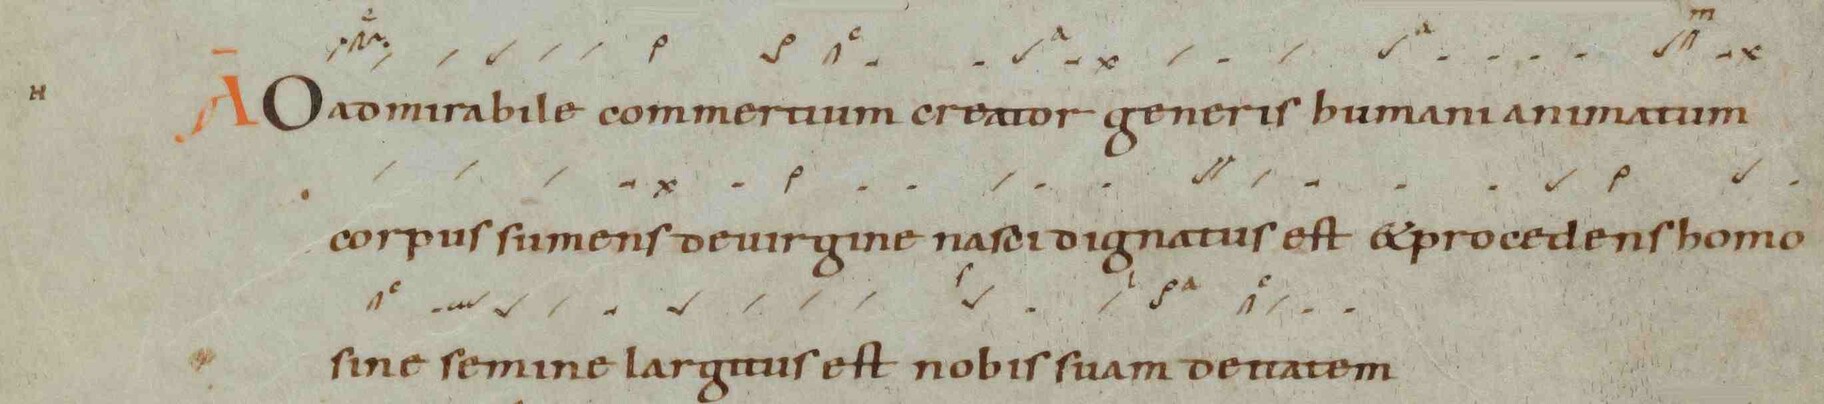 H A O admirabile commertium creator generis humani animatum
corpus sumens de uirgine nasci dignatus est & procedens homo
sine semine largitus est nobis suam deitatem